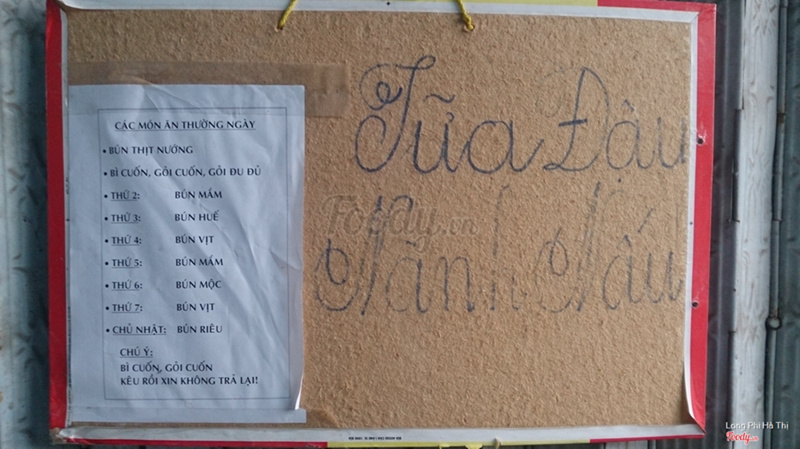 CÁC MÓN ĂN THƯỜNG NGÀY
• BÚN THỊT NƯỚNG
• BÌ CUỐN, GỎI CUỐN, GỎI ĐU ĐỦ
• THỨ 2: BÚN MẮM
• THỨ 3: BÚN HUẾ
• THỨ 4: BÚN VỊT
• THỨ 5: BÚN MẮM
• THỨ 6: BÚN MỘC
• THỨ 7: BÚN VỊT
• CHỦ NHẬT: BÚN RIÊU
CHÚ Ý:
BÌ CUỐN, GỎI CUỐN
KÊU RỒI XIN KHÔNG TRẢ LẠI!
Tũa Đậu
Nãnh Nấu
Foody.vn
Long Phi Hà Thị
Foody.vn